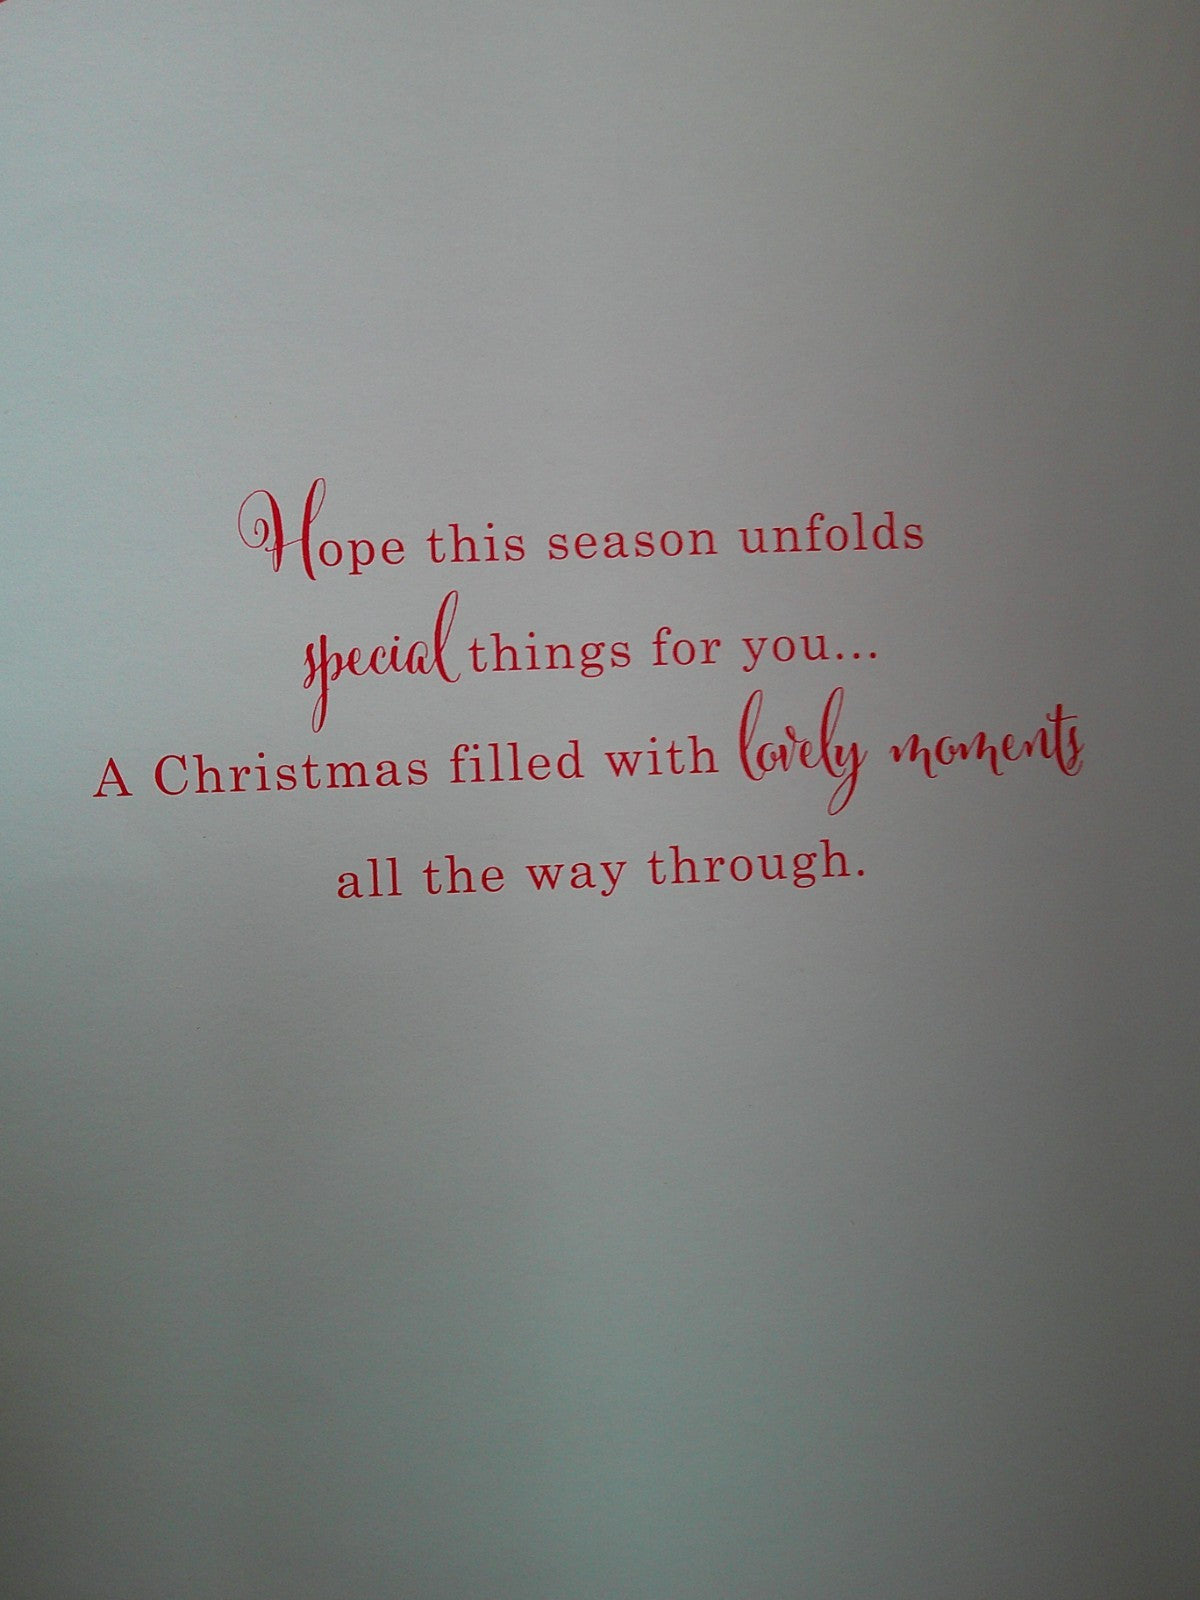 Hope this season unfolds
special things for you...
A Christmas filled with lovely moments
all the way through.